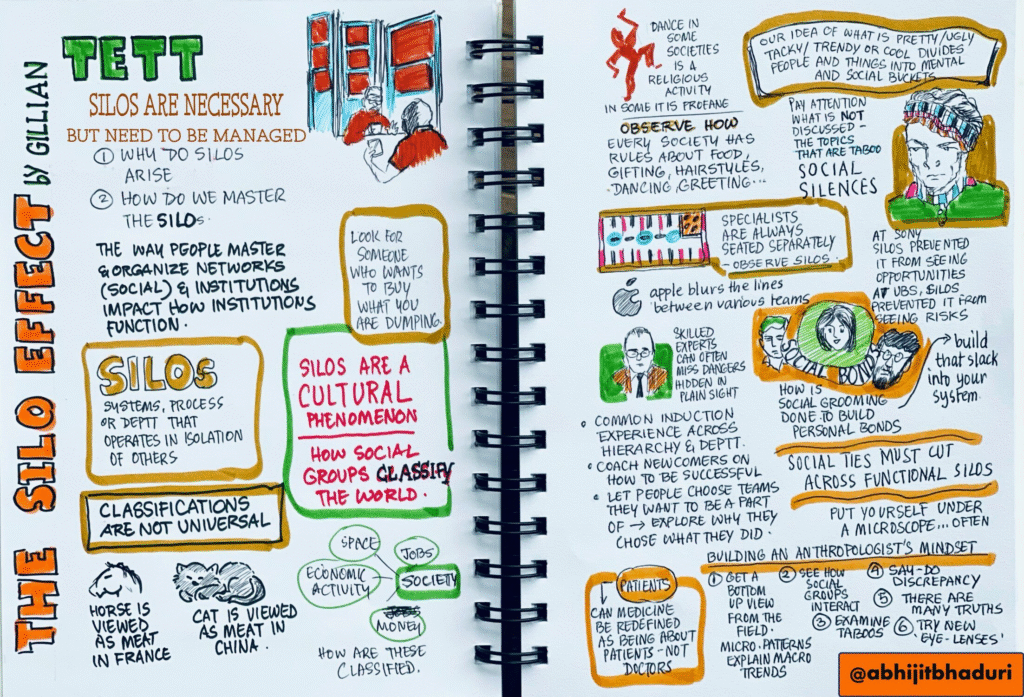 THE SILO EFFECT by GILLIAN
TETT
SILOS ARE NECESSARY
BUT NEED TO BE MANAGED
① WHY DO SILOS
ARISE
② HOW DO WE MASTER
THE SILOs.
THE WAY PEOPLE MASTER
& ORGANIZE NETWORKS
(SOCIAL) & INSTITUTIONS
IMPACT HOW INSTITUTIONS
FUNCTION.
LOOK FOR
SOMEONE
WHO WANTS
TO BUY
WHAT YOU
ARE DUMPING.
SILOs
SYSTEMS, PROCESS
OR DEPTT THAT
OPERATES IN ISOLATION
OF OTHERS
SILOS ARE A
CULTURAL
PHENOMENON
HOW SOCIAL
GROUPS CLASSIFY
THE WORLD.
CLASSIFICATIONS
ARE NOT UNIVERSAL
HORSE IS
VIEWED
AS MEAT
IN FRANCE
CAT IS VIEWED
AS MEAT IN
CHINA.
SPACE
JOBS
ECONOMIC
ACTIVITY
SOCIETY
MONEY
HOW ARE THESE
CLASSIFIED.
DANCE IN
SOME
SOCIETIES
IS A
RELIGIOUS
ACTIVITY
IN SOME IT IS PROFANE
OBSERVE HOW
EVERY SOCIETY HAS
RULES ABOUT FOOD,
GIFTING, HAIRSTYLES,
DANCING, GREETING...
OUR IDEA OF WHAT IS PRETTY/UGLY
TACKY/TRENDY OR COOL DIVIDES
PEOPLE AND THINGS INTO MENTAL
AND SOCIAL BUCKETS
PAY ATTENTION
WHAT IS NOT
DISCUSSED -
THE TOPICS
THAT ARE TABOO
SOCIAL
SILENCES
SPECIALISTS
ARE ALWAYS
SEATED SEPARATELY
- OBSERVE SILOS.
AT SONY
SILOS PREVENTED
IT FROM SEEING
OPPORTUNITIES
AT UBS, SILOS
PREVENTED IT FROM
SEEING RISKS
apple blurs the lines
between various teams
SKILLED
EXPERTS
CAN OFTEN
MISS DANGERS
HIDDEN IN
PLAIN SIGHT
SOCIAL BONDS
build
that slack
into your
system
HOW IS
SOCIAL GROOMING
DONE TO BUILD
PERSONAL BONDS
COMMON INDUCTION
EXPERIENCE ACROSS
HIERARCHY & DEPTT.
COACH NEWCOMERS ON
HOW TO BE SUCCESSFUL
LET PEOPLE CHOOSE TEAMS
THEY WANT TO BE A PART
OF → EXPLORE WHY THEY
CHOSE WHAT THEY DID.
SOCIAL TIES MUST CUT
ACROSS FUNCTIONAL SILOS
PUT YOURSELF UNDER
A MICROSCOPE... OFTEN
BUILDING AN ANTHROPOLOGIST'S MINDSET
PATIENTS
CAN MEDICINE
BE REDEFINED
AS BEING ABOUT
PATIENTS - NOT
DOCTORS
① GET A
BOTTOM
UP VIEW
FROM THE
FIELD.
MICRO-PATTERNS
EXPLAIN MACRO
TRENDS
② SEE HOW
SOCIAL
GROUPS
INTERACT
③ EXAMINE
TABOOS
④ SAY-DO
DISCREPANCY
⑤ THERE ARE
MANY TRUTHS
⑥ TRY NEW
'EYE-LENSES'
@abhijitbhaduri